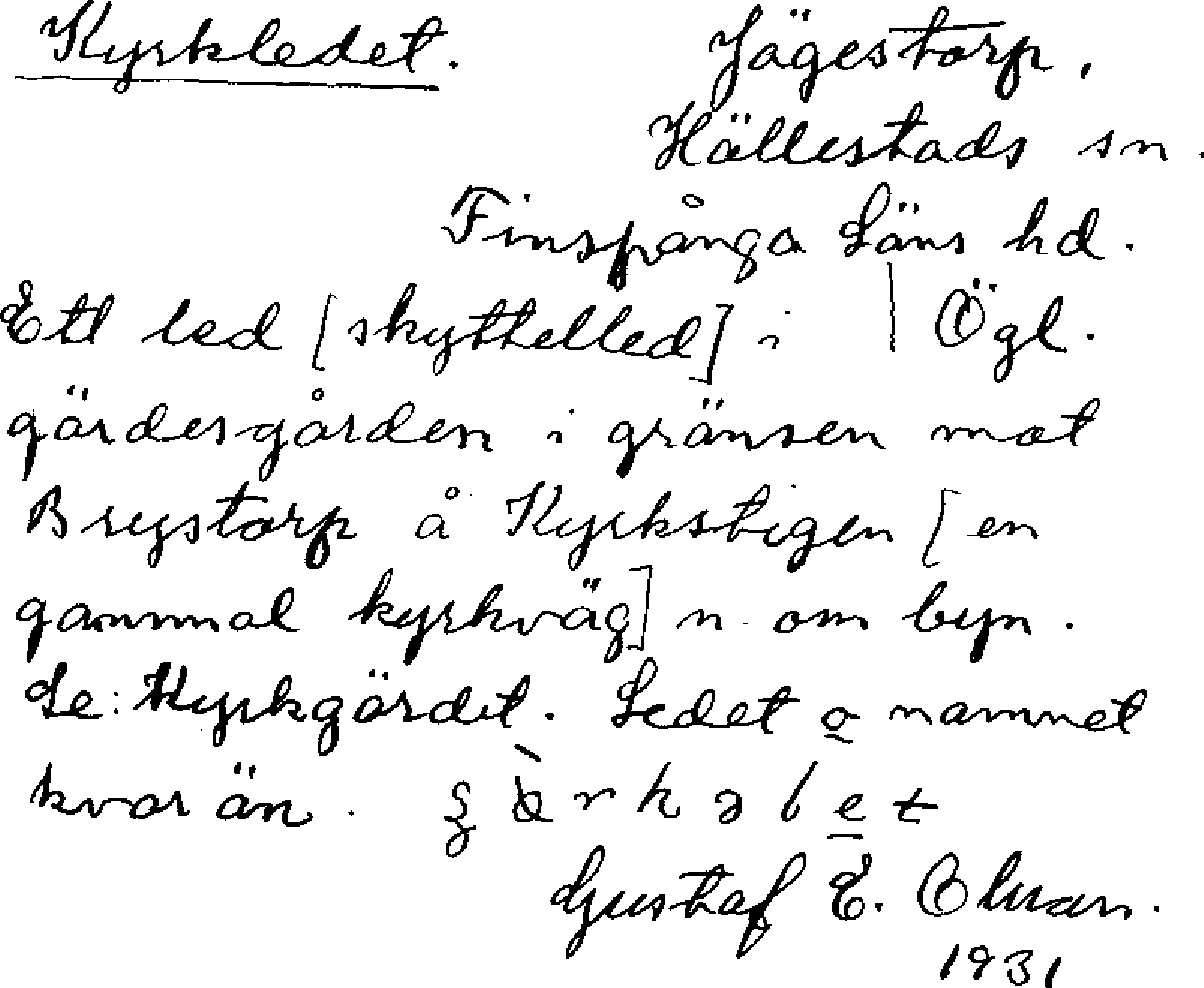 Kyrkledet. Jägestorp,
Hällestads sn.
Finspånga Läns hd.
Ett led [skyttelled] i | Ögl.
gärdesgården i gränsen mot
Brystorp å Kyrkstigen [en
gammal kyrkväg] n. om byn.
Se: Kyrkgärdet. Ledet o namnet
kvar än.
Gustaf E. Olsson.
1931